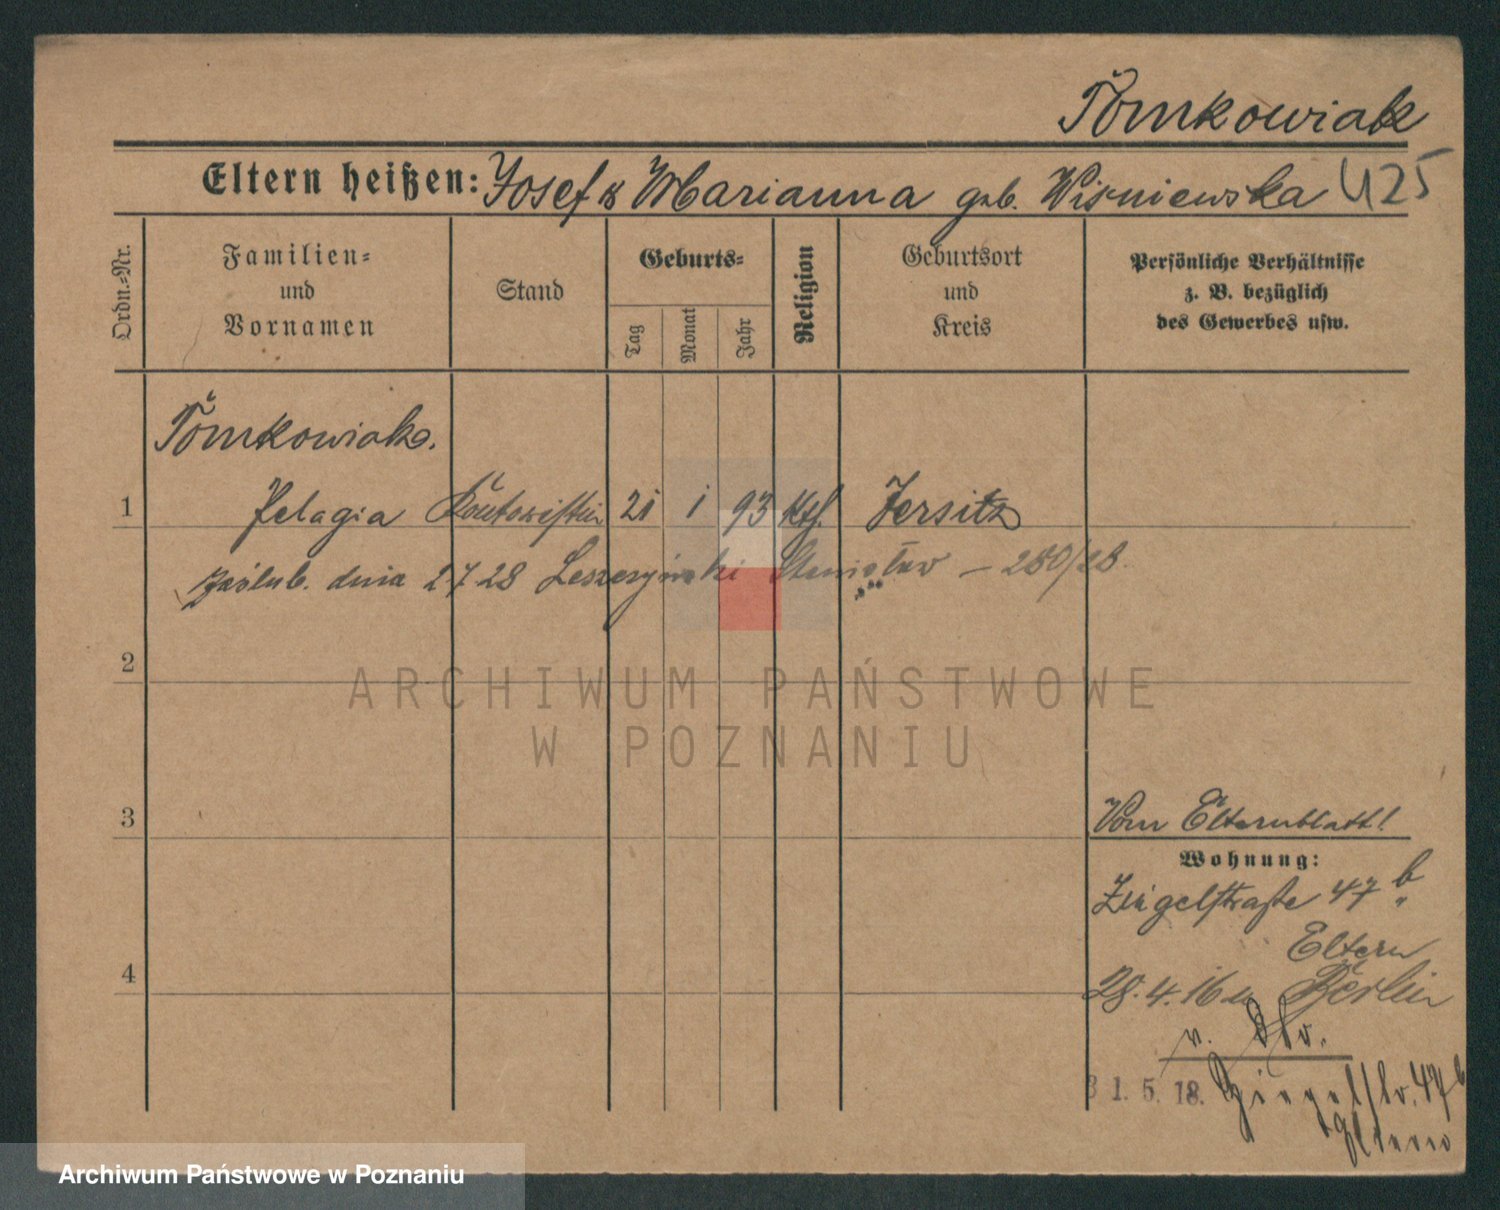 Tomkowiak
Eltern heißen: Josef & Marianna geb. Wiśniewska U25
Ordn.-Nr.
Familien-
und
Vornamen
Stand
Geburts-
Tag
Monat
Jahr
Religion
Geburtsort
und
Kreis
Persönliche Verhältnisse
z. B. bezüglich
des Gewerbes usw.
Tomkowiak.
1 Pelagia Kontoristin 21 1 93 kth. Jersitz
zaślub. dnia 2 7 28 Leszczyński Stanisław – 280/28.
2
ARCHIWUM PAŃSTWOWE
W POZNANIU
3
Vom Elternblatt!
Wohnung:
Ziegelstraße 47 b
Eltern
4
28.4.16 n Berlin
v.
31.5.18. Ziegelstr. 47 b
Eltern
Archiwum Państwowe w Poznaniu